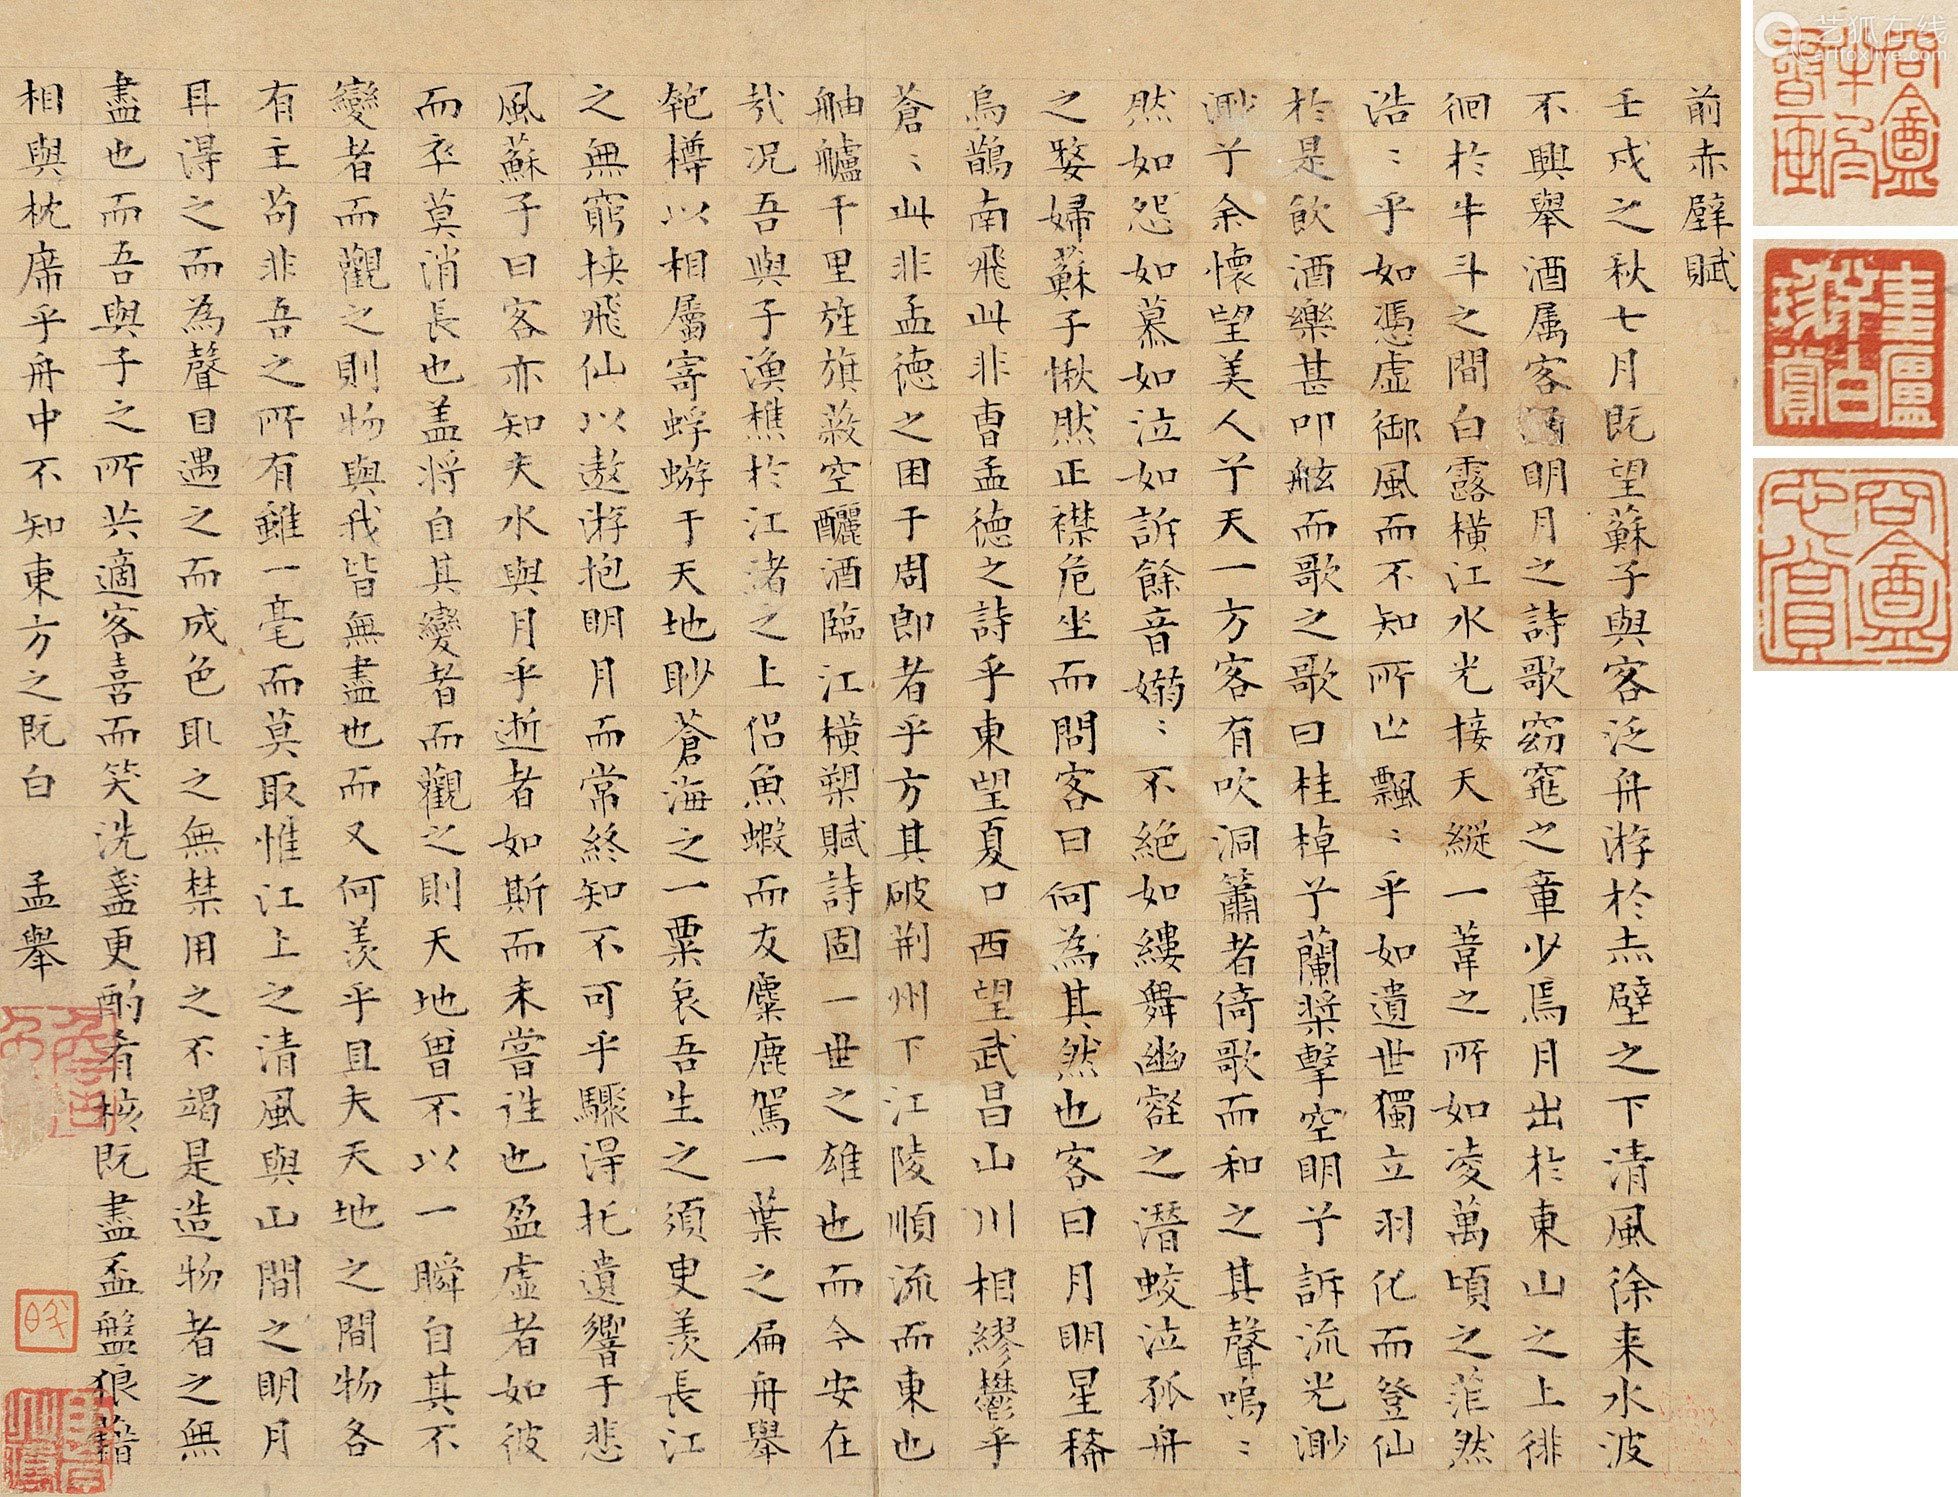 前赤壁賦
壬戌之秋七月既望蘇子與客泛舟游於赤壁之下清風徐来水波
不興舉酒属客誦明月之詩歌窈窕之章少焉月出於東山之上徘
徊於牛斗之間白露橫江水光接天縱一葦之所如凌萬頃之茫然
浩〻乎如馮虛御風而不知所止飄〻乎如遺世獨立羽化而登仙
於是飲酒樂甚叩舷而歌之歌曰桂棹兮蘭槳擊空明兮訴流光渺
渺兮余懷望美人兮天一方客有吹洞簫者倚歌而和之其聲嗚〻
然如怨如慕如泣如訴餘音嫋〻不絕如縷舞幽壑之潛蛟泣孤舟
之嫠婦蘇子愀然正襟危坐而問客曰何為其然也客曰月明星稀
烏鵲南飛此非曹孟德之詩乎東望夏口西望武昌山川相繆鬱乎
蒼〻此非孟德之困于周郎者乎方其破荆州下江陵順流而東也
舳艫千里旌旗蔽空釃酒臨江橫槊賦詩固一世之雄也而今安在
哉況吾與子漁樵於江渚之上侶魚蝦而友麋鹿駕一葉之扁舟舉
匏樽以相屬寄蜉蝣于天地眇蒼海之一粟哀吾生之須臾羨長江
之無窮挾飛仙以遨游抱明月而常終知不可乎驟得托遺響于悲
風蘇子曰客亦知夫水與月乎逝者如斯而未嘗往也盈虛者如彼
而卒莫消長也盖将自其變者而觀之則天地曽不以一瞬自其不
變者而觀之則物與我皆無盡也而又何羨乎且夫天地之間物各
有主苟非吾之所有雖一毫而莫取惟江上之清風與山間之明月
耳得之而為聲目遇之而成色取之無禁用之不竭是造物者之無
盡也而吾與子之所共適客喜而笑洗盞更酌肴核既盡盃盤狼藉
相與枕席乎舟中不知東方之既白 孟舉
艺狐在线
artfoxlive.com